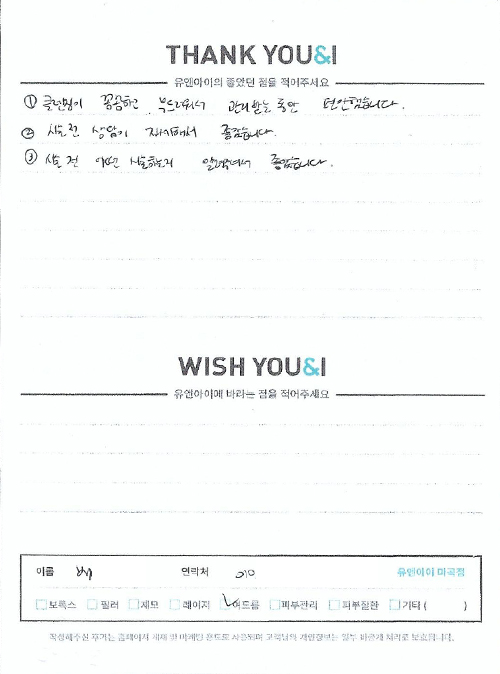 THANK YOU&I
유앤아이의 좋았던 점을 적어주세요
① 클렌징이 꼼꼼하고 부드러워서 관리받는 동안 편안했습니다.
② 시술 전 상담이 자세해서 좋았습니다.
③ 시술 전 어떤 시술하는지 알려줘서 좋았습니다.
WISH YOU&I
유앤아이에 바라는 점을 적어주세요
이름 연락처 010 유앤아이 마곡점
보톡스 필러 제모 레이저 여드름 피부관리 피부질환 기타 ( )
작성해주신 후기는 홈페이지 게재 및 마케팅 용도로 사용되며 고객님의 개인정보는 일부 비공개 처리로 보호됩니다.